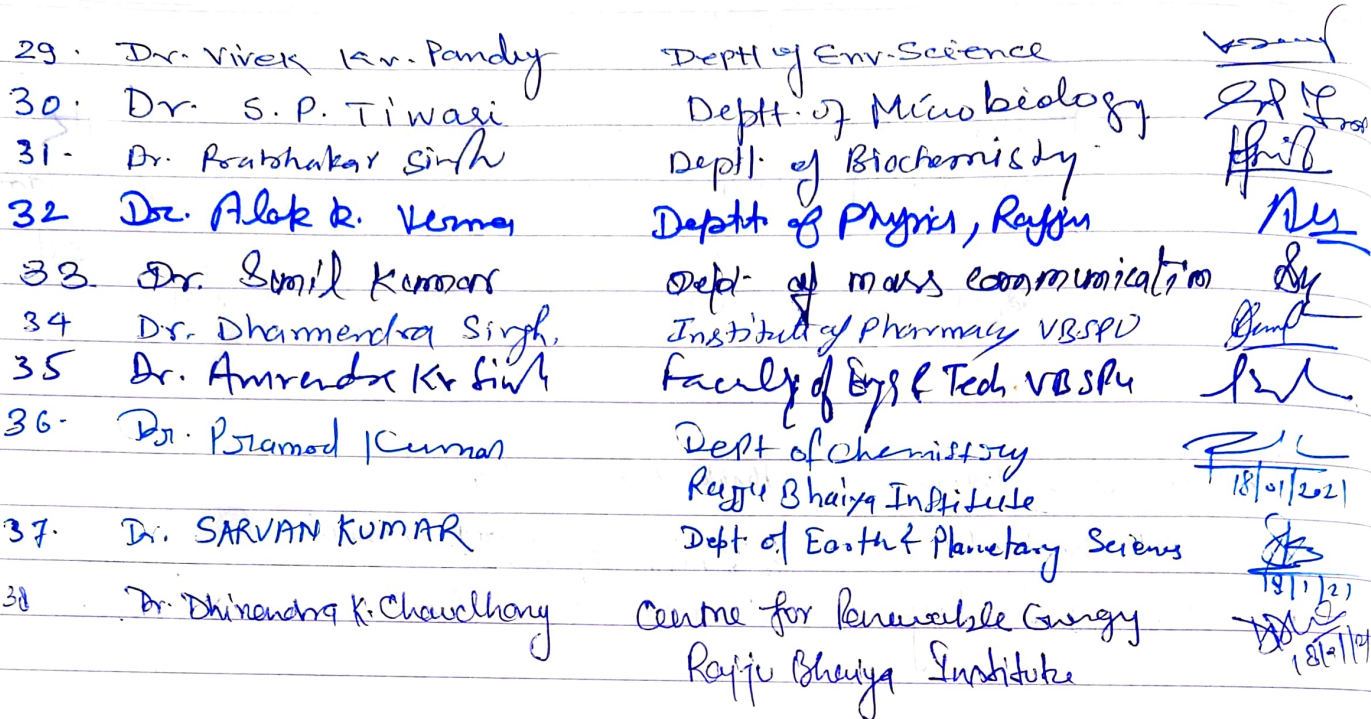 29. Dr. Vivek Kr. Pandey Deptt of Env. Science
30. Dr. S. P. Tiwari Deptt. of Microbiology
31- Dr. Prabhakar Singh Deptt. of Biochemistry
32 Dr. Alok k. Verma Deptt. of Physics, Rajju
33. Dr. Sunil Kumar Dept. of mass communication
34 Dr. Dharmendra Singh, Institute of Pharmacy VBSPU
35 Dr. Amrendra Kr Singh Faculty of Engg & Tech. VBSPU
36- Dr. Pramod Kumar Dept of Chemistry
Rajju Bhaiya Institute 18/01/2021
37. Dr. SARVAN KUMAR Dept of Earth & Planetary Sciences
18/1/21
38 Dr. Dhirendra K. Chaudhary Centre for Renewable Energy
Rajju Bhaiya Institute 18/01/21